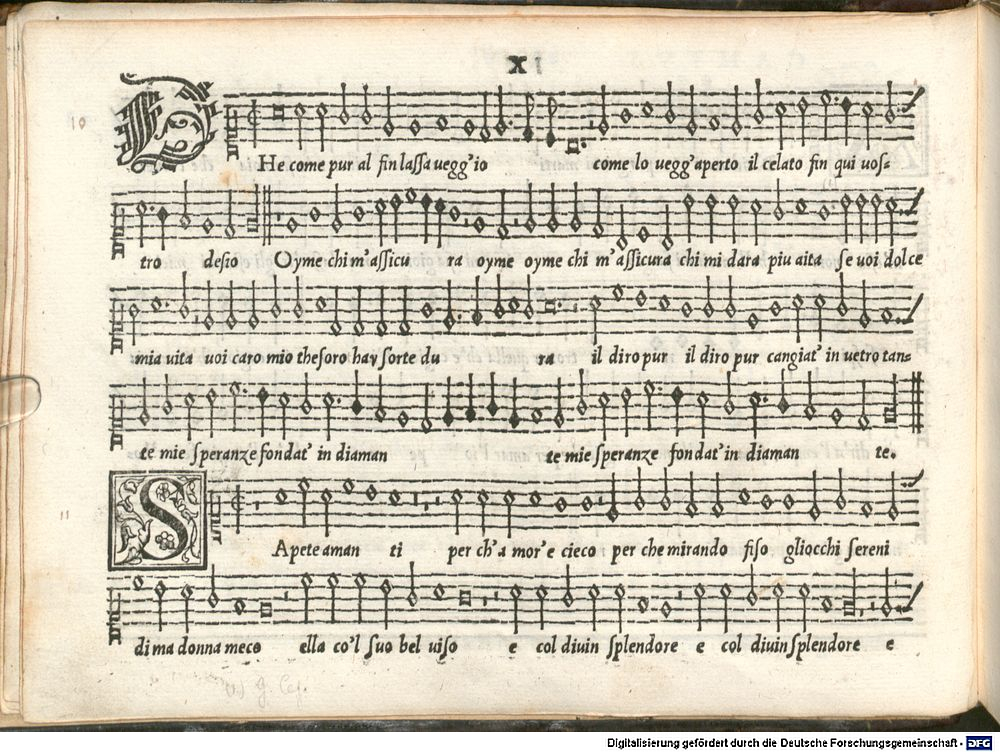 XI
10
He come pur al fin lassa uegg'io come lo uegg'aperto il celato fin qui uos-
tro desio Oyme chi m'assicu ra oyme oyme chi m'assicura chi mi dara piu aita se uoi dolce
mia uita uoi caro mio thesoro hay sorte du ra il diro pur il diro pur cangiat' in uetro tan-
te mie speranze fondat' in diaman te mie speranze fondat' in diaman te.
11
S Apete aman ti per ch'a mor'e cieco per che mirando fiso gliocchi sereni
di ma donna meco ella co'l suo bel uiso e col diuin splendore e col diuin splendore e
Digitalisierung gefördert durch die Deutsche Forschungsgemeinschaft - DFG